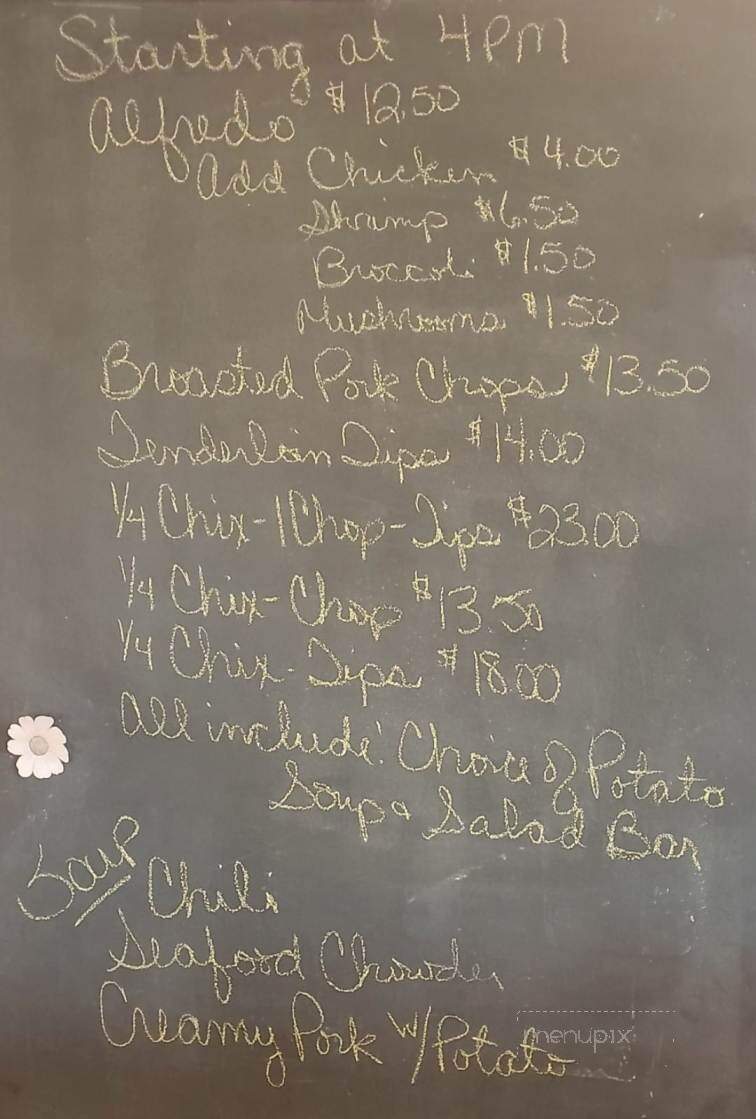 Starting at 4PM
Alfredo $12.50
Add Chicken $4.00
Shrimp $6.50
Broccoli $1.50
Mushrooms $1.50
Broasted Pork Chops $13.50
Tenderloin Tips $14.00
1/4 Chix-1Chop-Tips $23.00
1/4 Chix-Chop $13.50
1/4 Chix-Tips $18.00
All include: Choice of Potato
Soup & Salad Bar
Soup
Chili
Seafood Chowder
Creamy Pork w/Potato
menupix